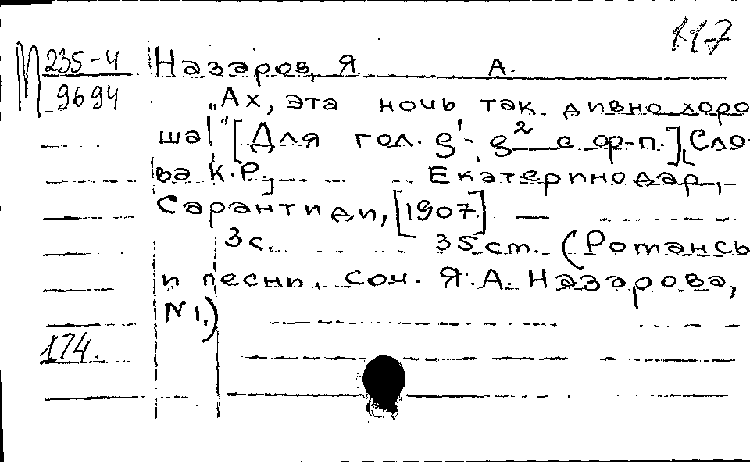 117
М 235-4
9694
Назаров, Я. А.
„Ах, эта ночь так дивно хоро
ша!" [Для гол. g¹- g² с ф-п.] Сло-
ва К.Р.
Екатеринодар,
Сарантиди, [1907]
3с. 35 cm. (Романсы
и песни, соч. Я.А. Назарова,
N 1.)
174.